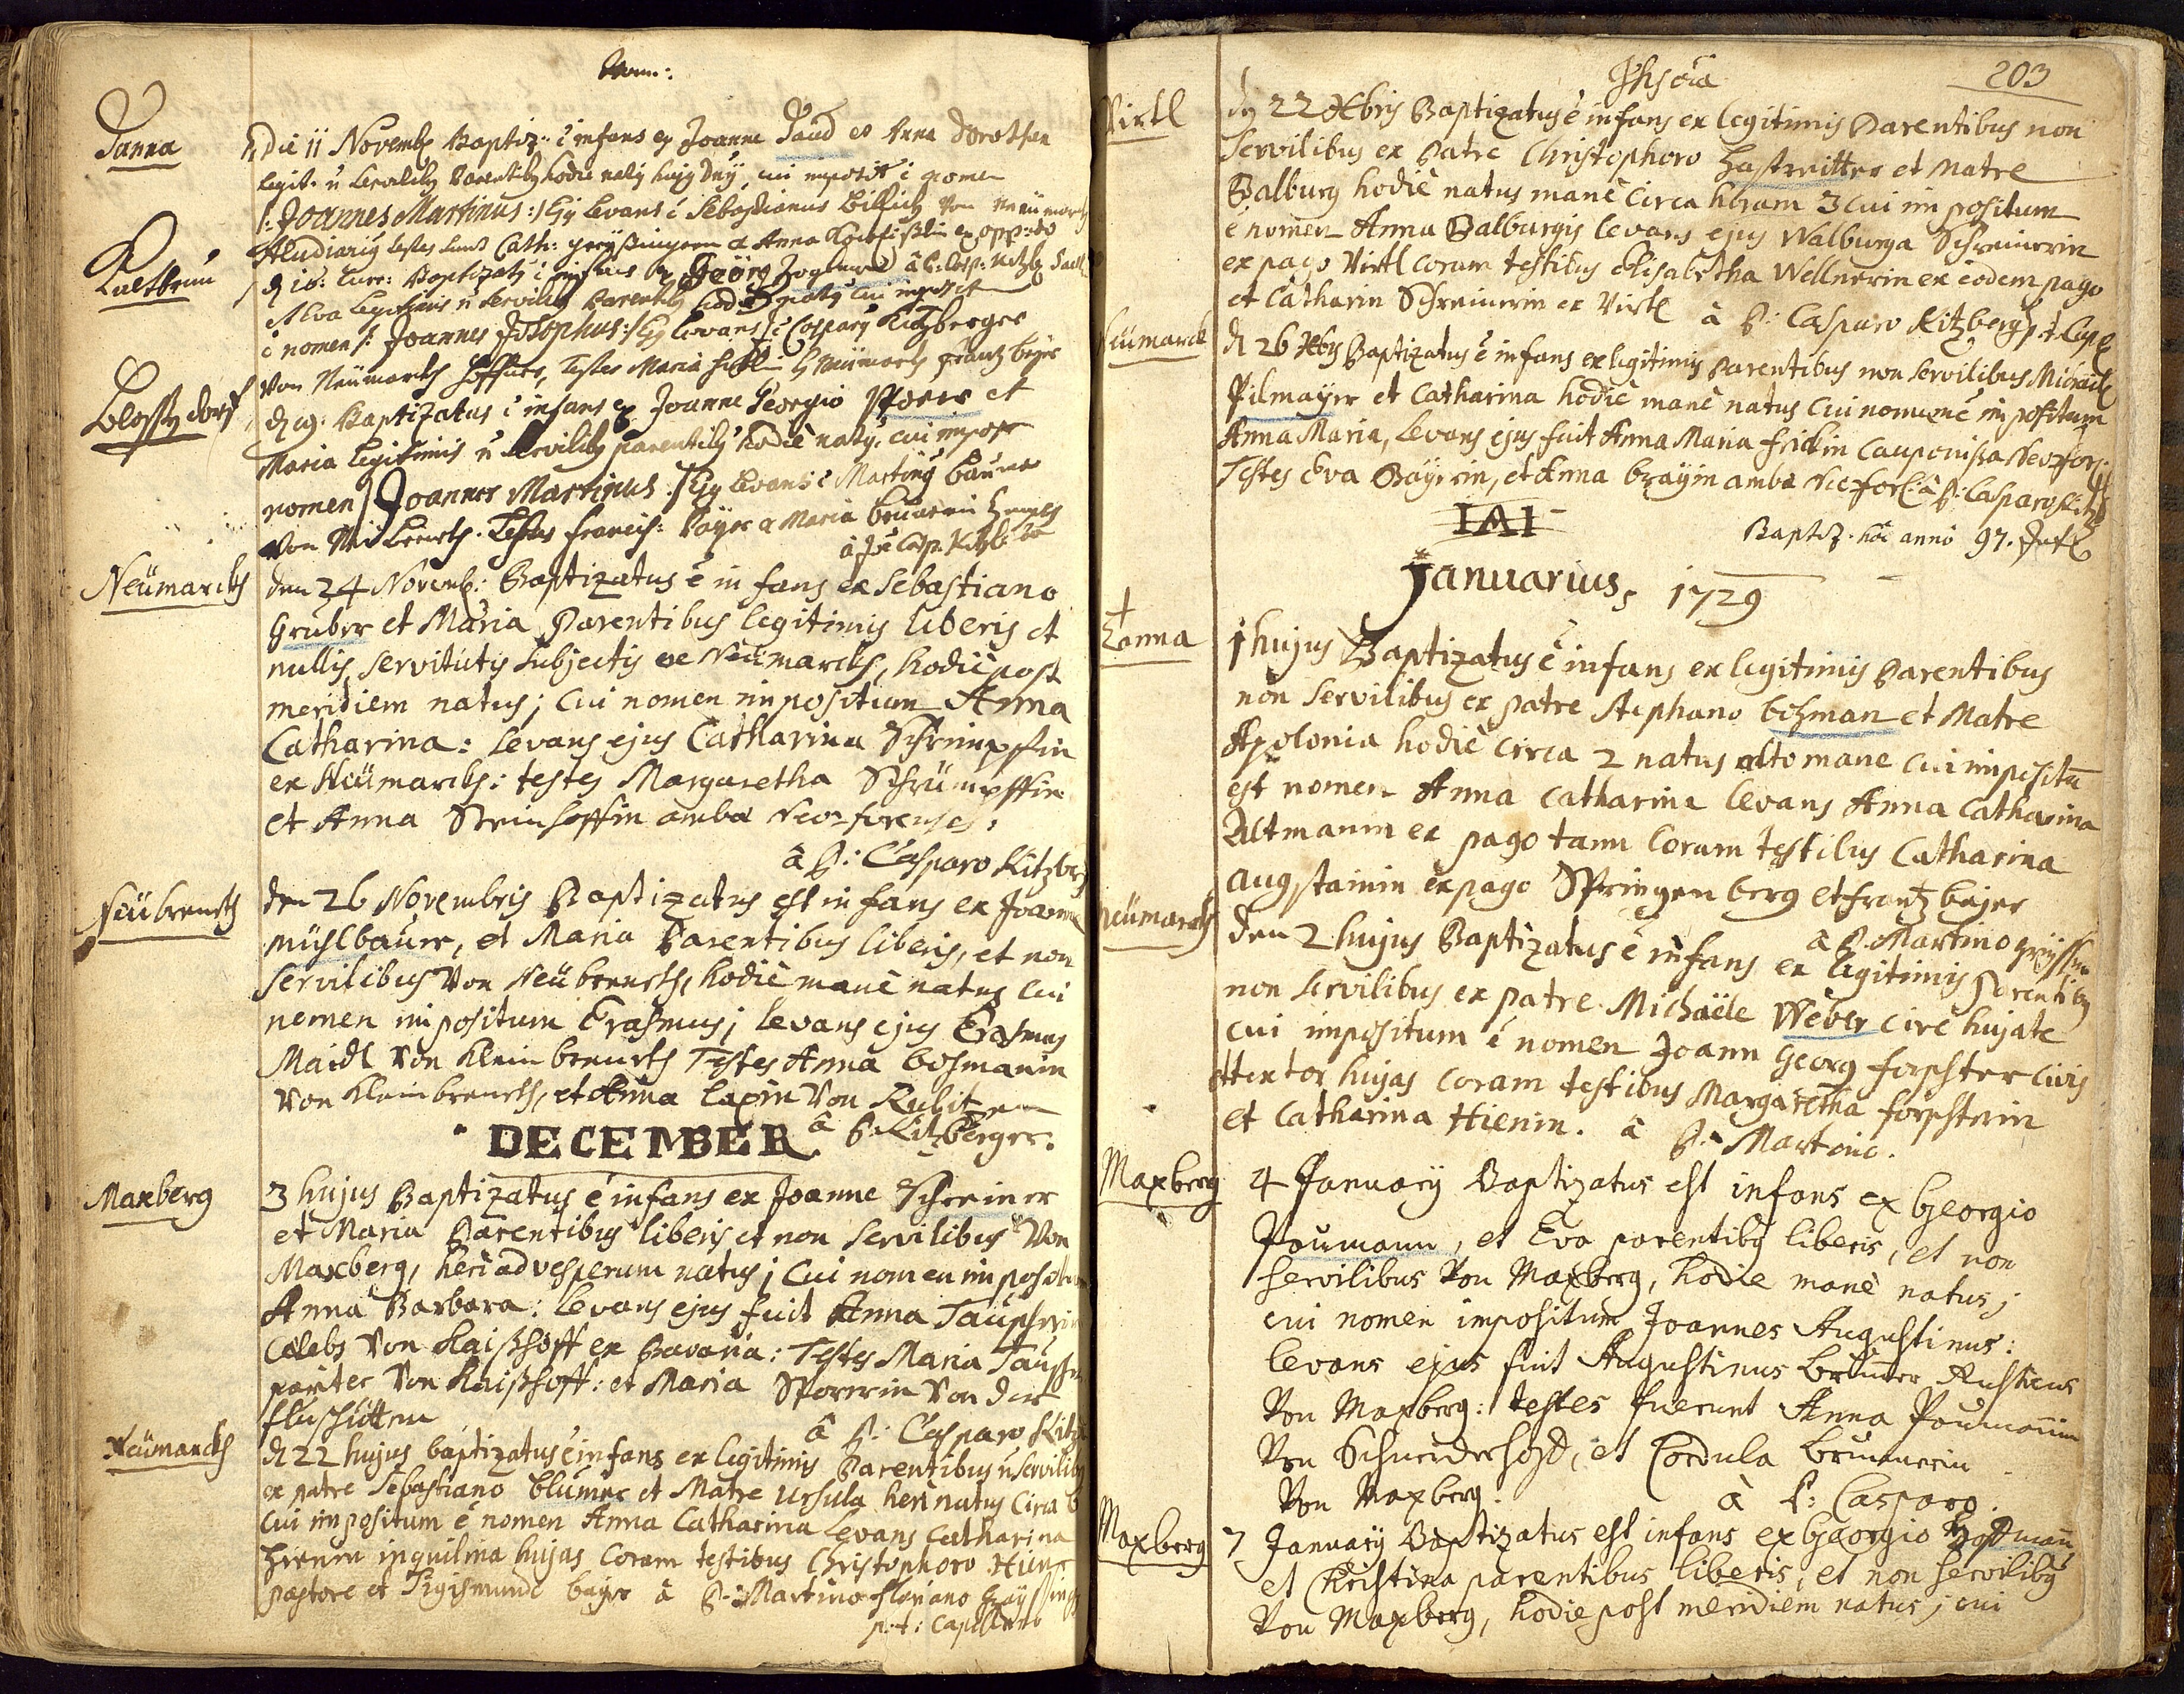 Tanna
Die 11 Novemb Baptiz: ē infans ex Joanne Taud et Anna Dorothea
legit. n̄ servilib Parentib hodie natg hujg Dnij, cui imposit ē nomen
/: Joannes Martinus :/ Ejg Levans ē Sebastianus Billich Von Neümarch
Studiarig testes sunt Cath: & Anna
Kaltbrun
d 18: Curr: Baptizatg ē infans ex Geörg
Eva Legitimis n̄ servilib Parentib hodie natg cui imposit
ē nomen /: Joannes :/ Ejg Levans ē Casparg Kitzberger
Von Neümarch, Testes Maria Frantz bejer
Blossendorf
d 19: Baptizatus ē infans ex Joanne Georgio Sporer et
Maria legitimis n̄ servilib parentib hodie natg. cui impos
nomen / Joannes Martinus / Ejg Levans ē Marting bauer
Testes Francisc: Payer & Maria
à P Casp. Kitzb
Neümarckh
den 24 Novemb: Baptizatus ē infans ex Sebastiano
Gruber et Maria Parentibus legitimis liberis et
nullis servitutis subjectis ex Neümarckh, hodie post
meridiem natus; Cui nomen impositum Anna
Catharina: Levans ejus Catharina Schrimpffin
ex Neümarckh: testes Margaretha Schrümpffin
et Anna Steinhoffin ambæ Neoforenses:
à P: Casparo Kitzberg
Neübreuth
den 26 Novembris Baptizatus est infans ex Joanne
Mühlbaür, et Maria Parentibus liberis, et non
servilibus Von Neübreuth, hodie mane natus cui
nomen impositum Erasmus; Levans ejus Erasmus
Maidl Von Kleinbreuth Testes Anna bohmanin
Von Kleinbreuth, et Anna laxin Von
à P: Kitzberger.
DECEMBER
Maxberg
3 hujus Baptizatus ē infans ex Joanne Schreiner
et Maria Parentibus liberis et non servilibus Von
Maxberg, heri ad vesperum natus; Cui nomen impositum
Anna Barbara: Levans ejus fuit Anna
Cœlebs Von Kaißhoff ex Bavaria: Testes Maria
pariter Von Kaißhoff: et Maria Sporerin Von der
flushütten
à P: Casparo Kitz
Neümarckh
d 22 hujus baptizatus ē infans ex legitimis Parentibus n̄ servilib
ex patre Sebastiano blümer et Matre Ursula heri natus circa 6
cui impositum ē nomen Anna Catharina Levans Catharina
Hienin inquilina hujas Coram testibus Christophoro Hien
pastore et Sigismundo bajer à P: Martino Floriano
p. t: Capellano
203
Virtl
dg 22 Xbris Baptizatus ē infans ex legitimis Parentibus non
servilibus ex Patre Christophoro Hastreitter et Matre
Balburg hodiè natus manè circa horam 3 cui impositum
ē nomen Anna Balburgis levans ejus Walburga Schreinerin
ex pago Virtl coram testibus Elisabetha Wellnerin ex eodem pago
et Catharin Schreinerin ex Virtl à P: Casparo Kitzberg p t Cap
Neümarck
d 26 Xbris Baptizatus ē infans ex legitimis Parentibus non servilibus Michaele
Pilmayer et Catharina hodiè manè natus cui nomen ē impositum
Anna Maria, Levans ejus fuit Anna Maria frickin Cauponissa Neofor:
Testes Eva Bayrin, et Anna brayin ambæ Neofor: à P: Casparo Kitzb
IAI
Baptiz. hoc anno 97. Inf
Januarius, 1729
Tanna
1 hujus Baptizatus ē infans ex legitimis Parentibus
non servilibus ex patre Stephano bohman et Matre
Apolonia hodiè circa 2 natus alto mane cui impositū
est nomen Anna Catharina levans Anna Catharina
Altmanin ex pago tann Coram testibus Catharina
augstainin ex pago Springenberg et frantz bajer
à P. Martino
Neümarckh
den 2 hujus Baptizatus ē infans ex legitimis Parentibg
non servilibus ex patre Michaële Weber cive hujate
cui impositum ē nomen Joann Georg forschter civis
et textor hujas coram testibus Margaretha forschterin
et Catharina Hienin. à P. Martino.
Maxberg
4 January Baptizatus est infans ex Georgio
Poümann, et Eva parentibg liberis, et non
servilibus Von Maxberg, hodie manè natus;
cui nomen impositum Joannes Augustinus:
levans ejus fuit Augustinus brunner Rusticus
Von Maxberg: testes fuerunt Anna Poümanin
Von Schneiderhoff, et Cordula brunnerin
Von Maxberg. à P: Casparo.
Maxberg
7 January Baptizatus est infans ex Georgio Hoffmañ
et Christina parentibus liberis, et non servilibg
Von Maxberg, hodie post meridiem natus; cui